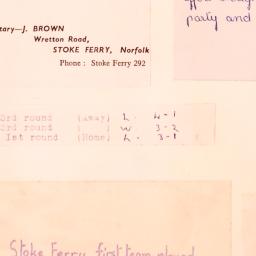 tary—J. BROWN
Wretton Road,
STOKE FERRY, Norfolk
Phone : Stoke Ferry 292
party and
3rd round (Away) L. 4-1
3rd round ( ) W 3-2
1st round (Home) L. 3-1
Stoke Ferry first team played